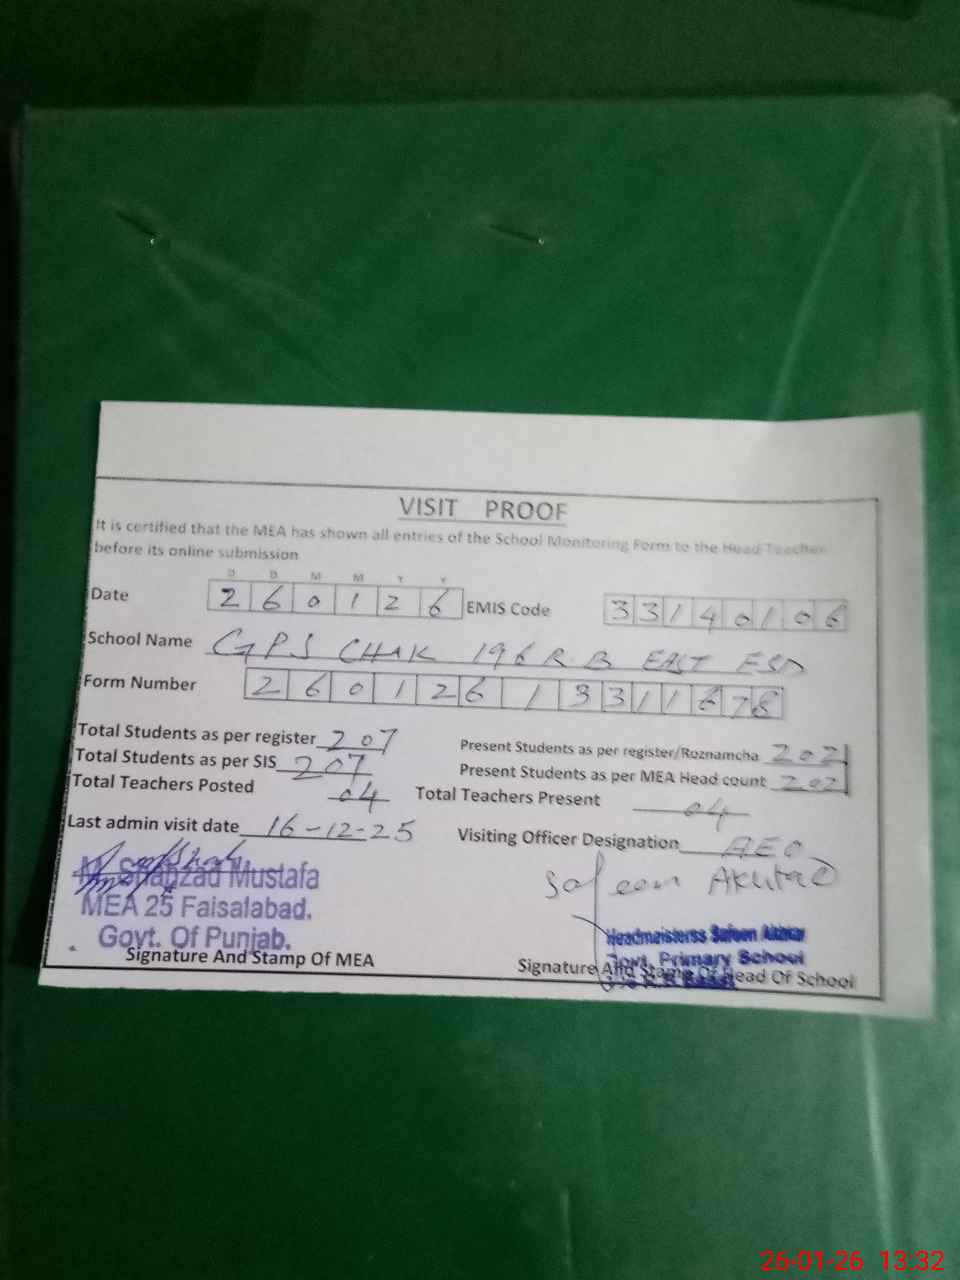 VISIT PROOF
It is certified that the MEA has shown all entries of the School Monitoring Form to the Head Teacher
before its online submission
D D M M Y Y
Date 2 6 0 1 2 6 EMIS Code 3 3 1 4 0 1 0 6
School Name GPS CHAK 196 R.B EAST FSD
Form Number 2 6 0 1 2 6 1 3 3 1 1 6 7 8
Total Students as per register 207 Present Students as per register/Roznamcha 202
Total Students as per SIS 207 Present Students as per MEA Head count 202
Total Teachers Posted 04 Total Teachers Present 04
Last admin visit date 16-12-25 Visiting Officer Designation AEO
Safeen Akhtar
M. Shahzad Mustafa
MEA 25 Faisalabad.
Govt. Of Punjab.
Signature And Stamp Of MEA
Headmeisterss Safeen Akhtar
Govt. Primary School
Signature And Stamp Of Head Of School
26-01-26 13:32